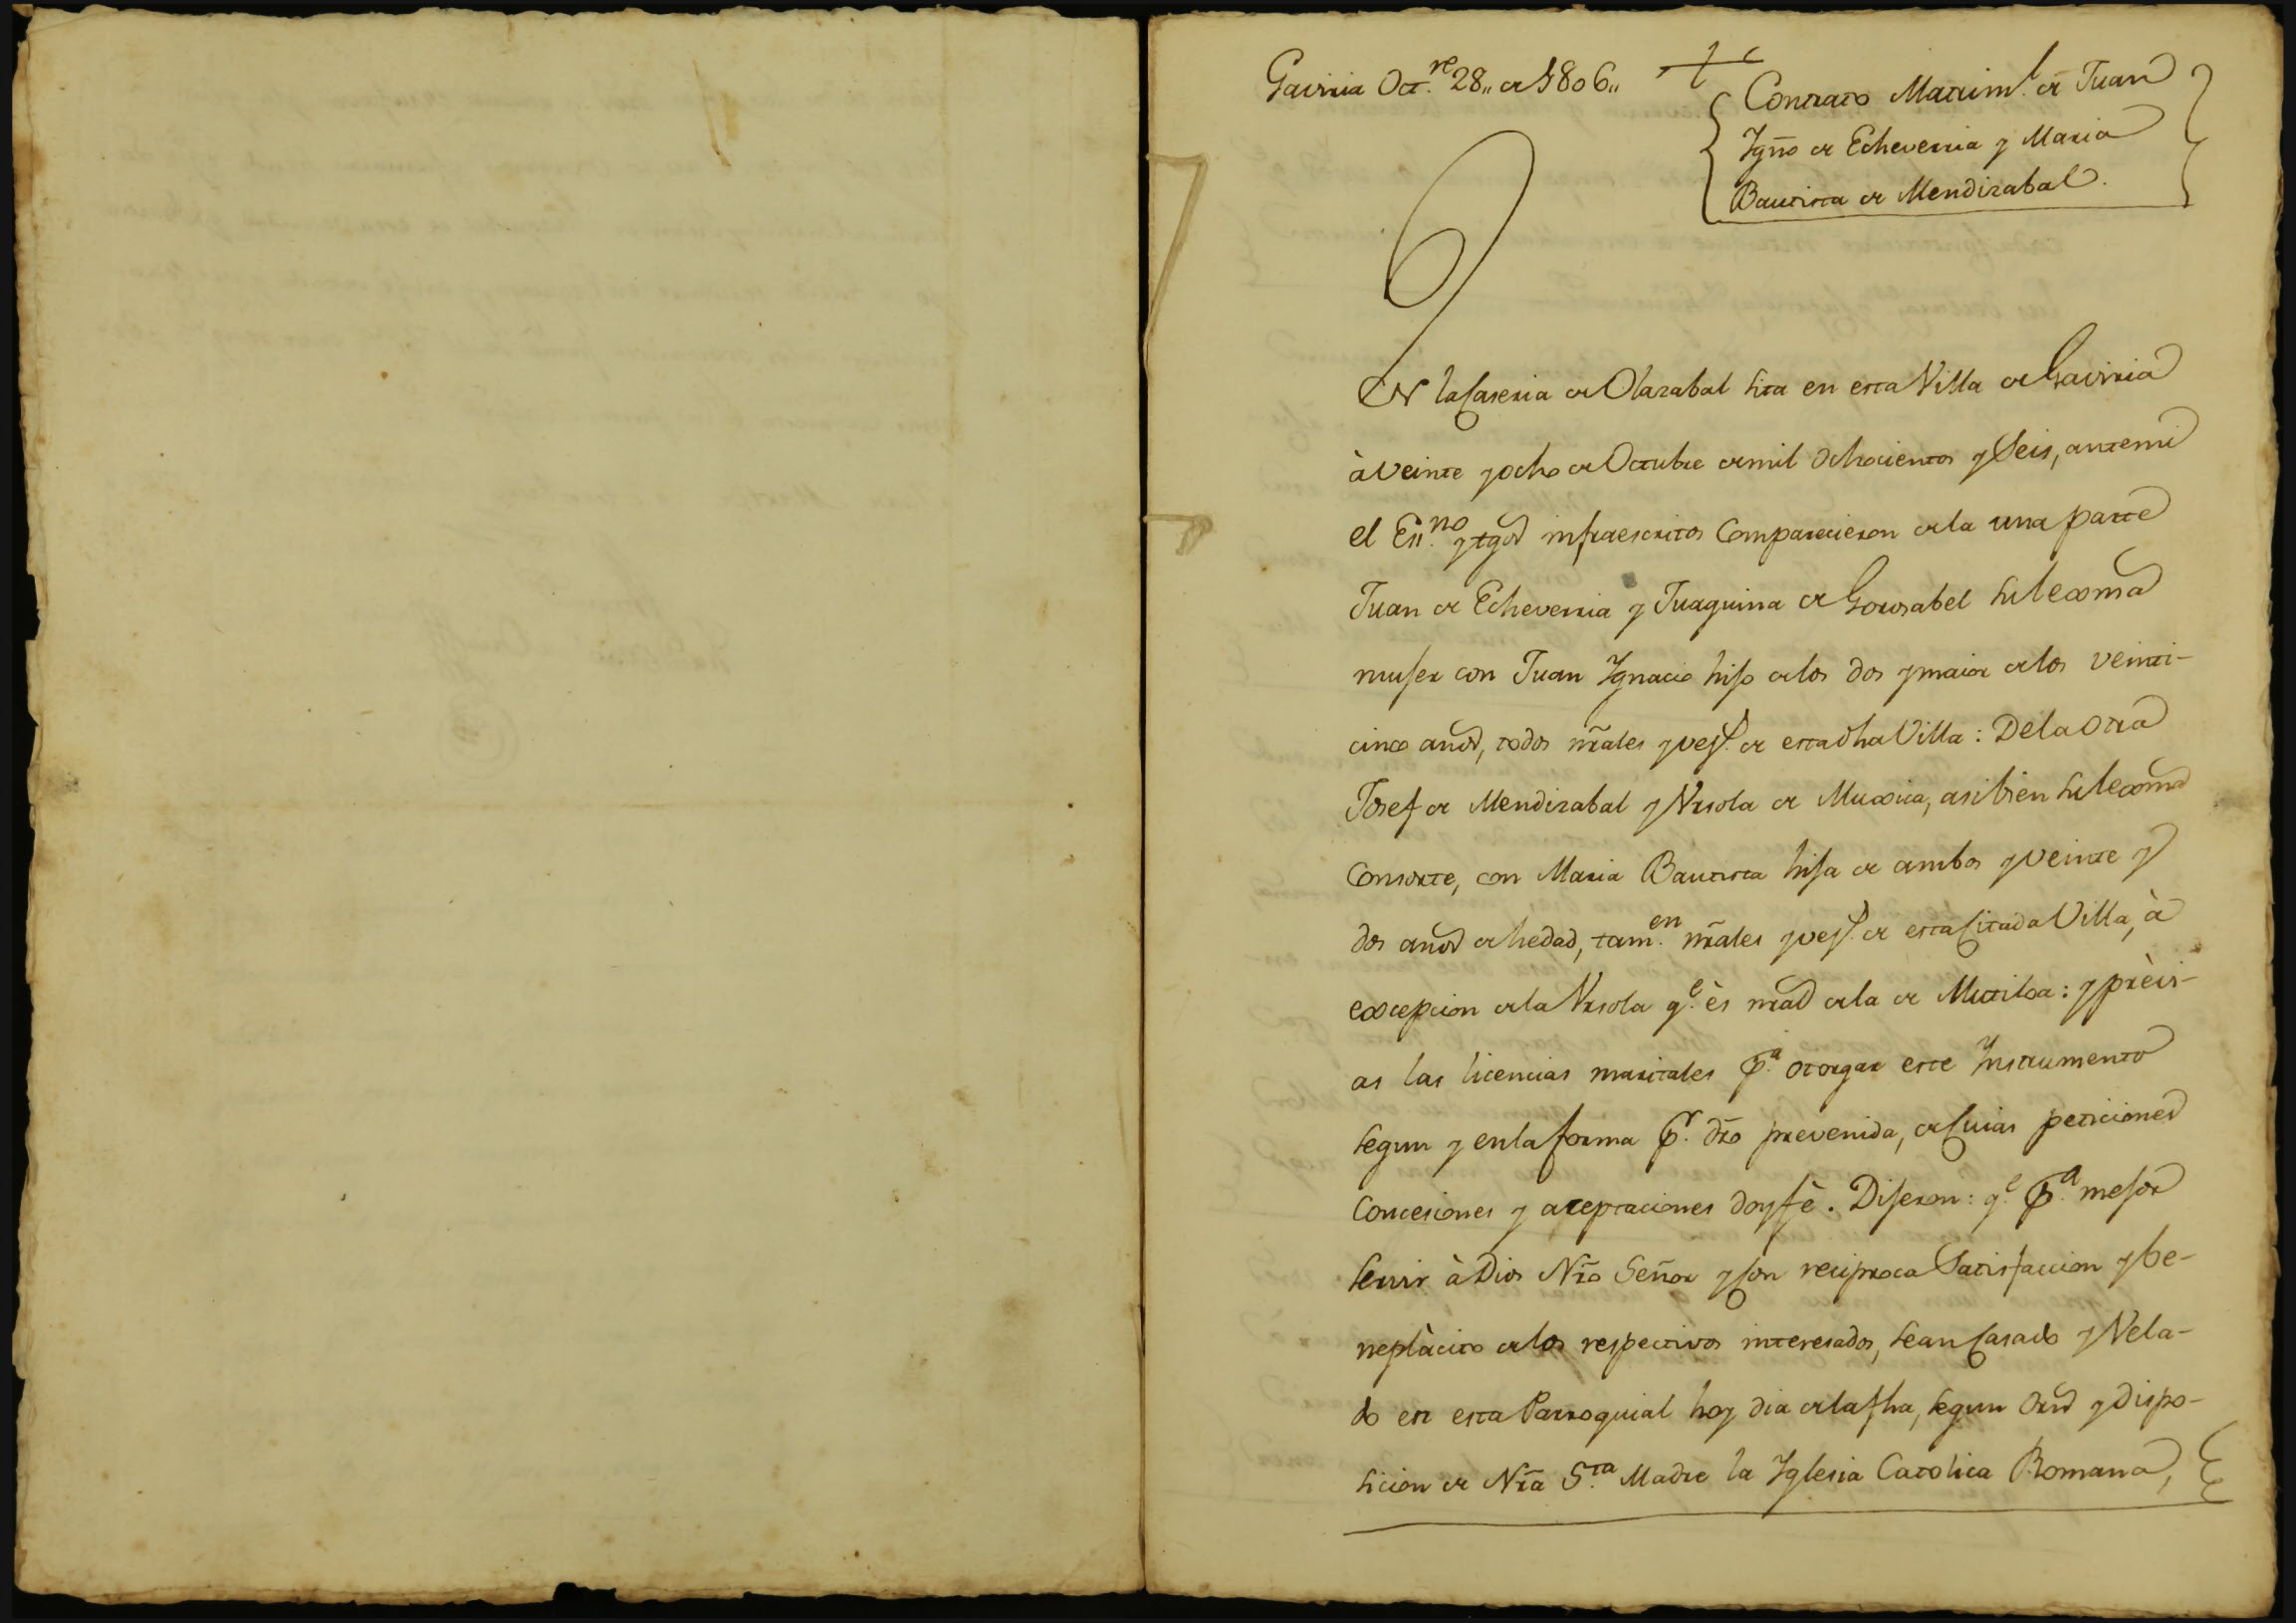 Gaviria Oct.re 28,, de 1806,,
Contrato Matrim.l de Juan
Ygño de Echeverria y Maria
Bautista de Mendizabal.
EN la Caseria de Olazabal sita en esta Villa de Gaviria
à Veinte y ocho de Octubre de mil Ochocientos y Seis, ante mi
el Ess.no y tgos infraescritos Comparecieron de la una parte
Juan de Echeverria y Juaquina de Gorosabel su lexma
muger con Juan Ygnacio hijo de los dos y maior de los veinti-
cinco años, todos nrãles y vez.s de esta dha Villa: De la otra
Josef de Mendizabal y Vrsola de Muxica, asibien su lexma
Consorte, con Maria Bautista hija de ambos y veinte y
dos años de hedad, tam.en nrãles y vez.s de esta Citada Villa, à
excepcion de la Vrsola q.e ès nral de la de Mutiloa: y prèvi-
as las licencias maritales p.a otorgar este Ynstrumento
segun y en la forma p.r dro prevenida, de Cuias peticiones
Concesiones y aceptaciones doy fè. Dijeron: q.e p.a mejor
servir à Dios Nrõ Señor y con reciproca Satisfaccion y be-
neplàcito de los respectivos interesados, se an Casado y Vela-
do en esta Parroquial hoy dia de la fha, segun Orn y dispo-
sicion de Nrã S.ta Madre la Yglesia Catolica Romana,